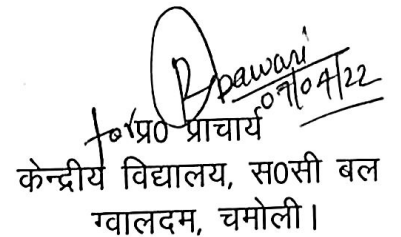 07/04/22
for प्र0 प्राचार्य
केन्द्रीय विद्यालय, स0सी बल
ग्वालदम, चमोली।